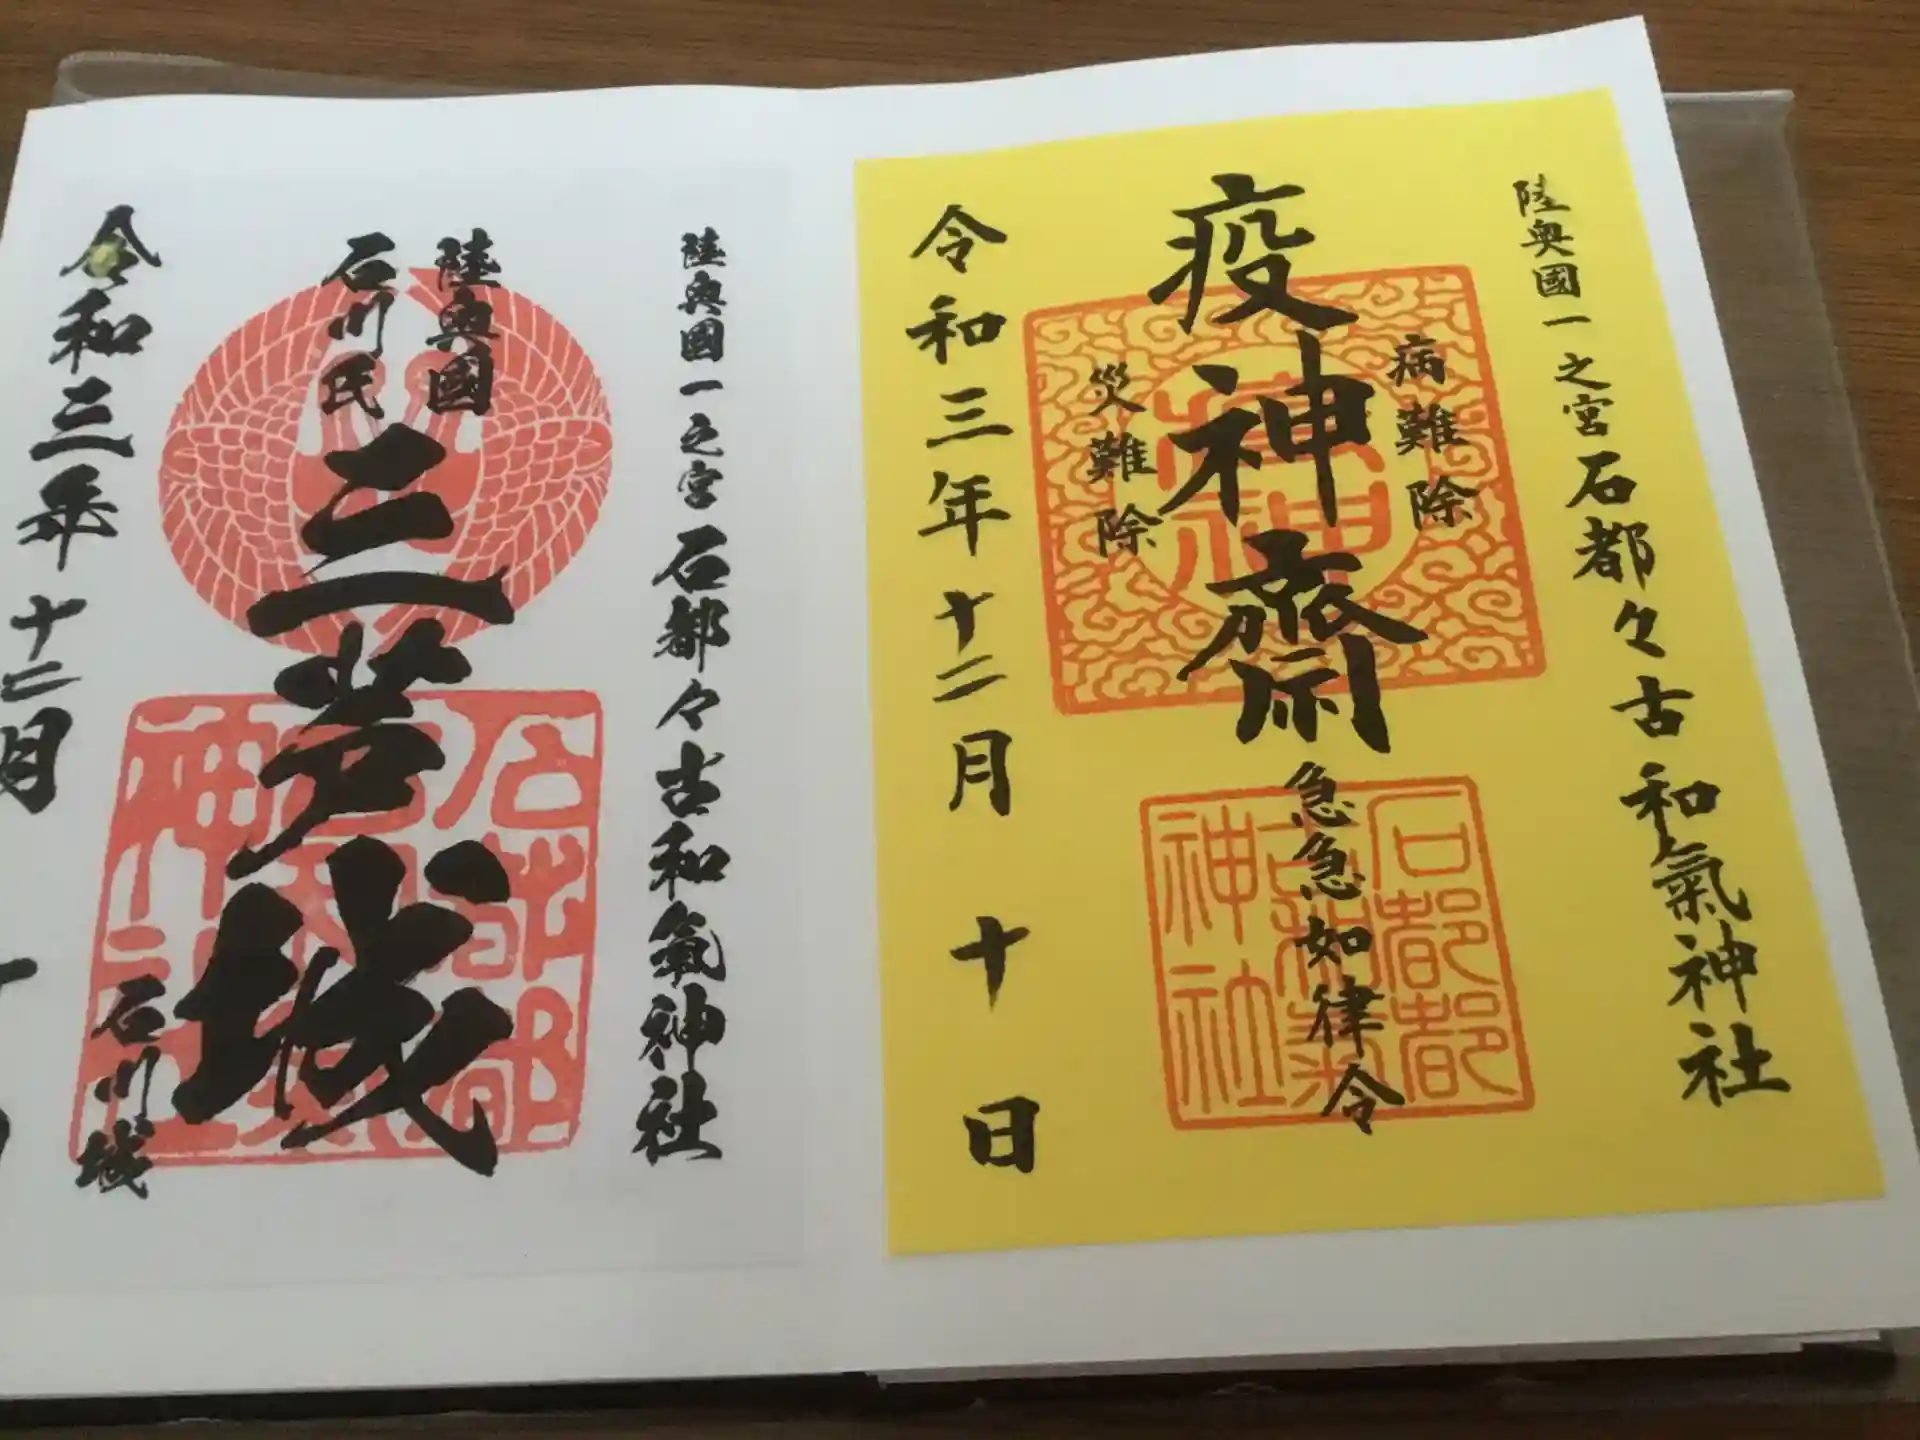 陸奥國一之宮石都々古和氣神社
病難除
疫神齋
災難除
急急如律令
石都都古和氣神社
令和三年十二月十日
陸奥國一之宮石都々古和氣神社
陸奥國
石川氏
三芦城
石都都古和氣神社
石川城
令和三年十二月